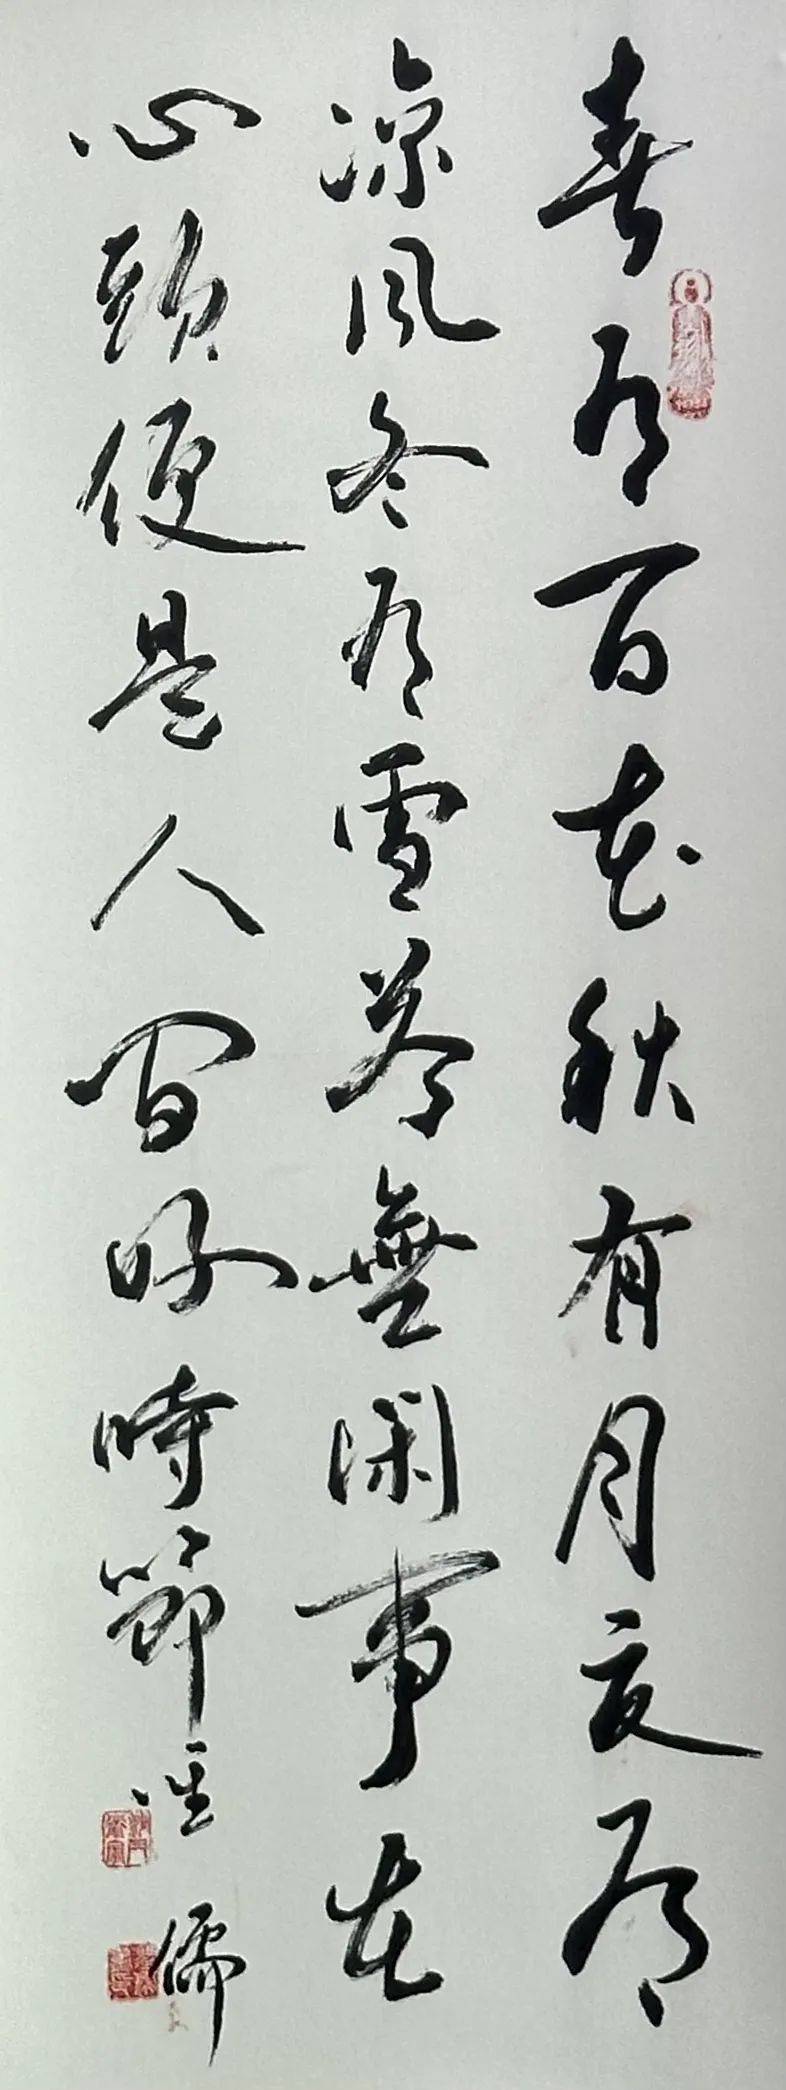 春有百花秋有月夏有
涼風冬有雪若無閑事在
心頭便是人間好時節
儒